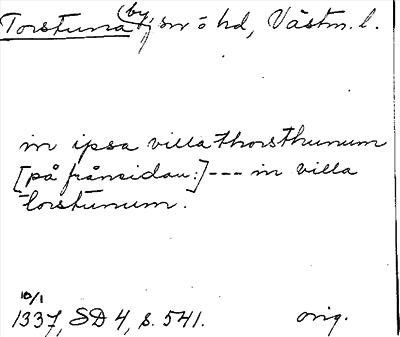 Torstuna (by), sn o hd, Västm. l.
in ipsa villa thorsthunum
[på frånsidan:] --- in villa
torstunum.
10/1
1337, SD 4, s. 541. orig.